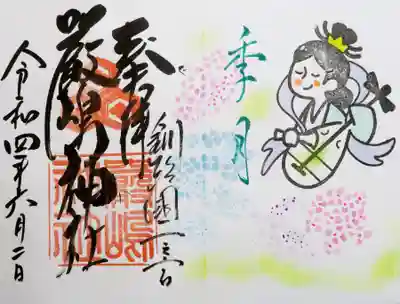 季月
奉拝
釧路國一之宮
嚴嶋神社
令和四年六月二日